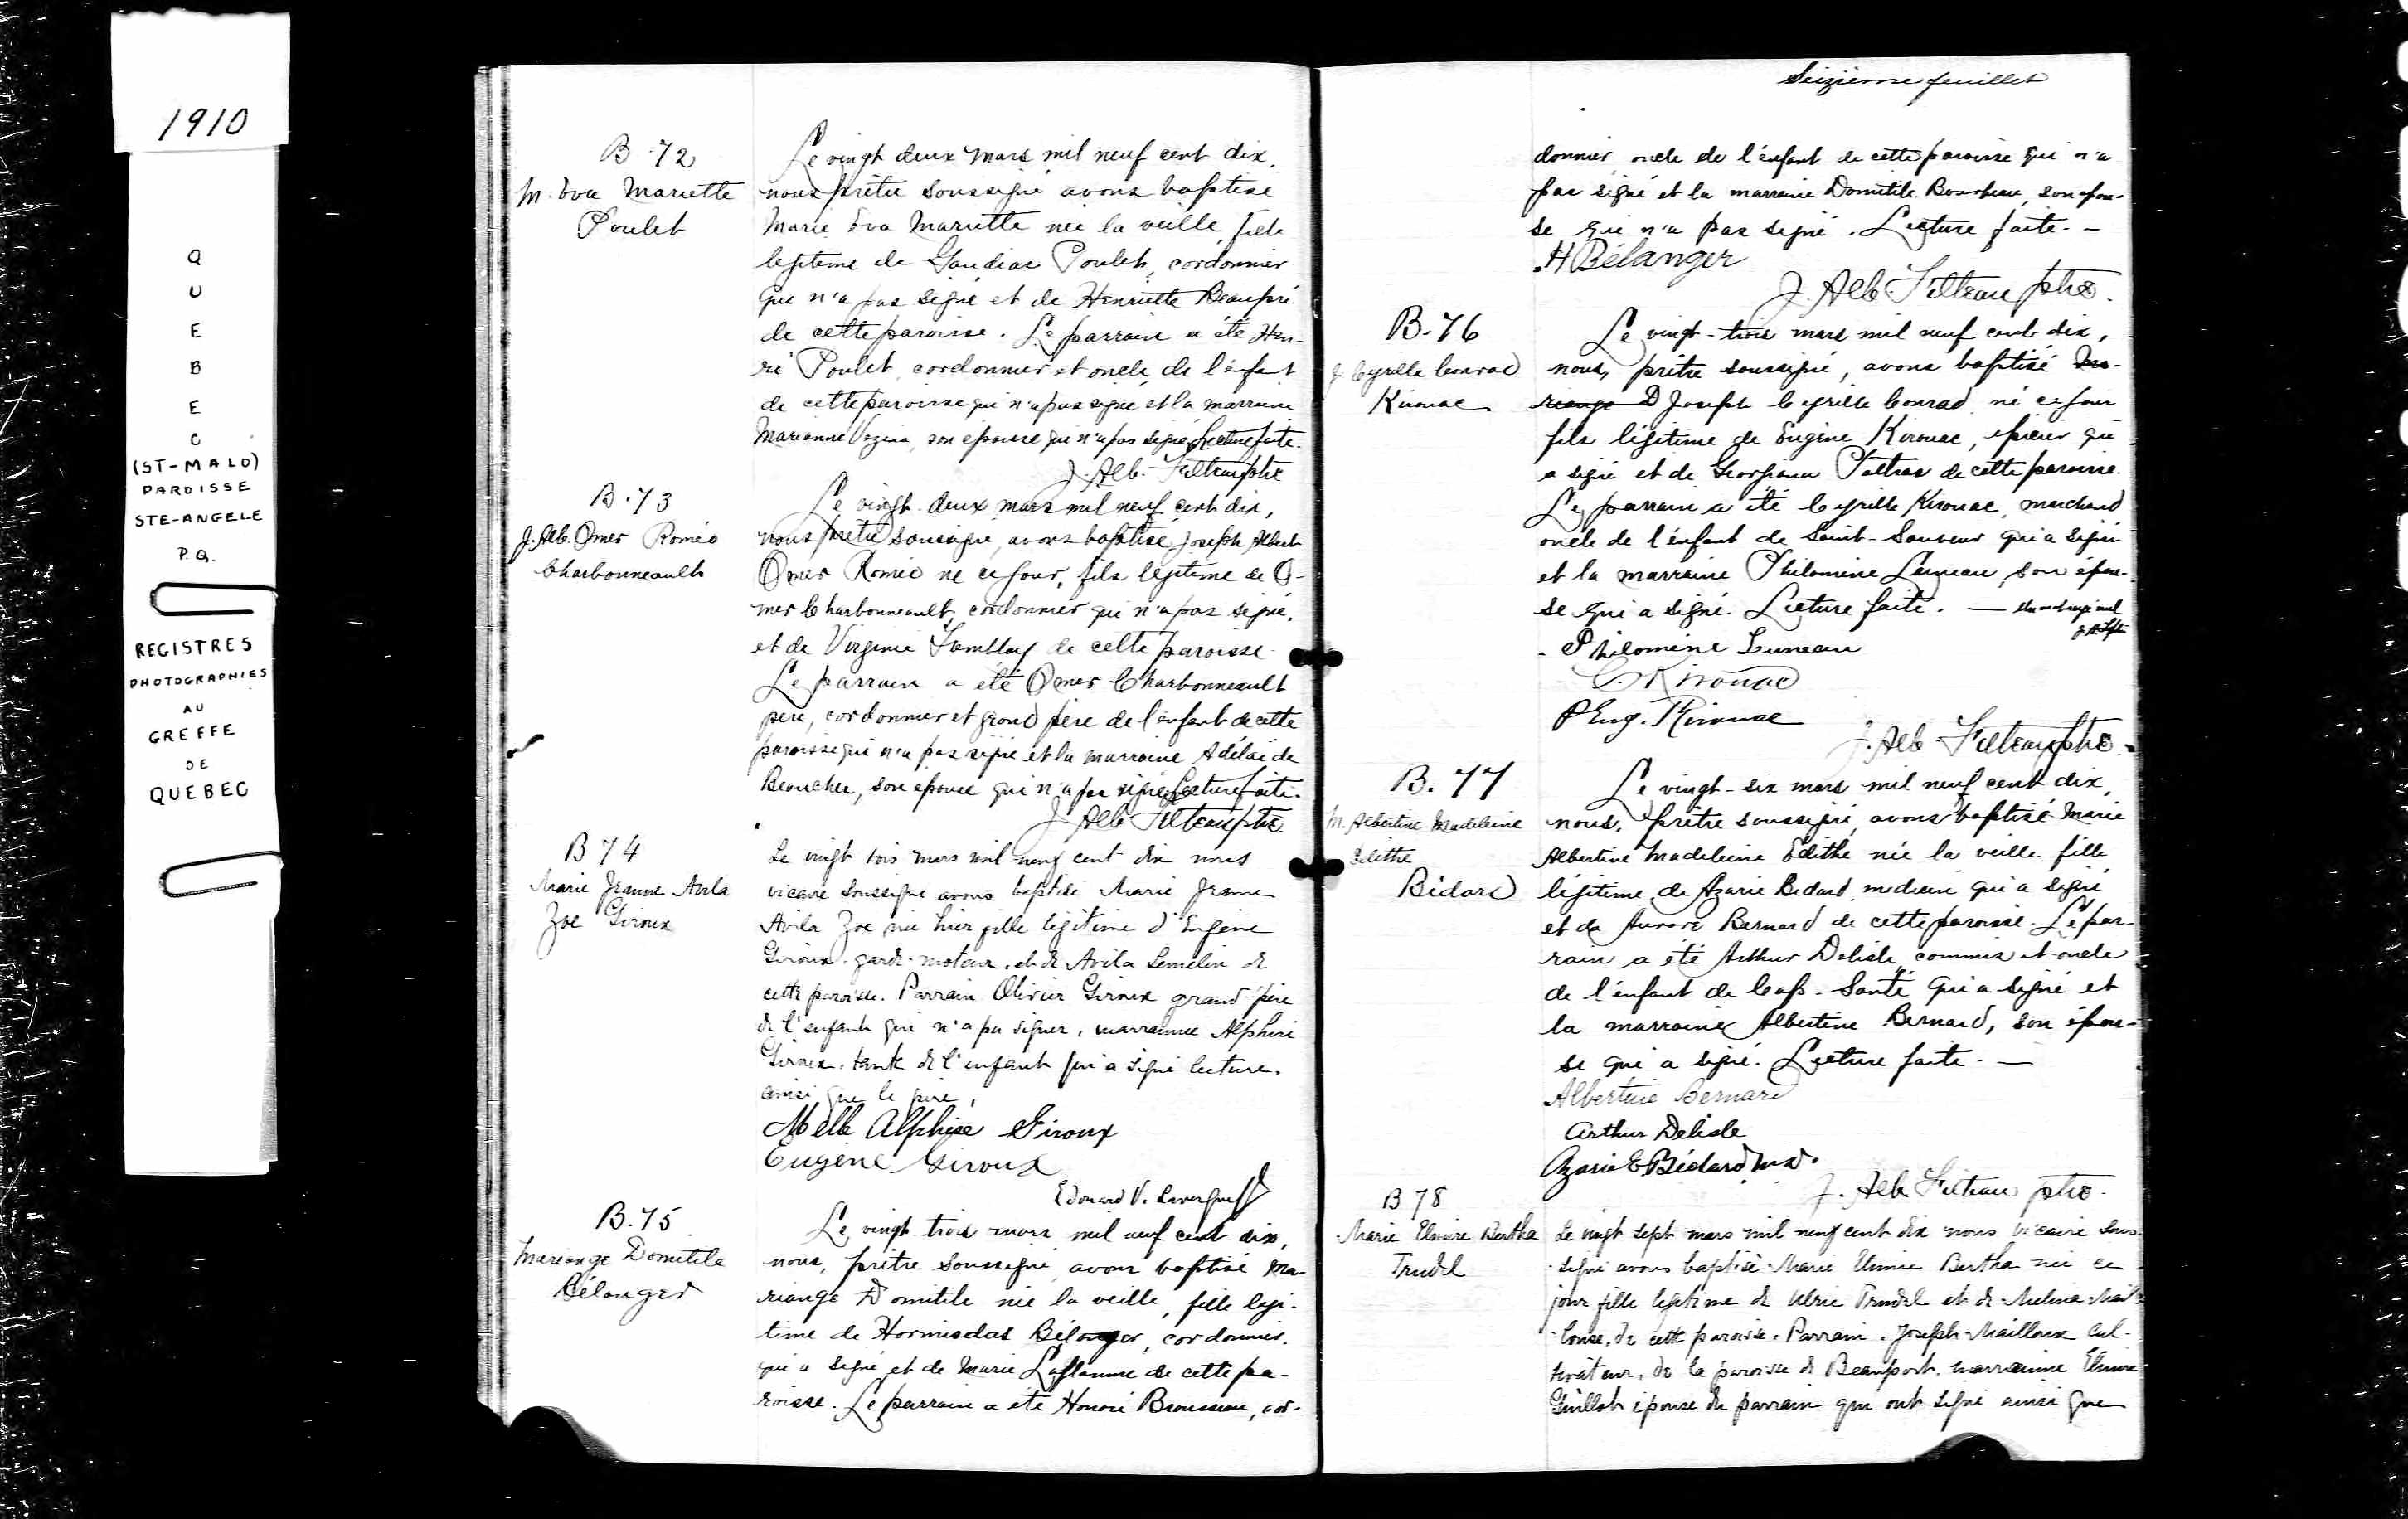 1910
Q
U
E
B
E
C
(ST-MALO)
PAROISSE
STE-ANGELE
P.Q.
REGISTRES
PHOTOGRAPHIES
AU
GREFFE
DE
QUEBEC
B. 72
M. Eva Mariette
Poulet
Le vingt deux mars mil neuf cent dix,
nous prêtre soussigné avons baptisé
Marie Eva Mariette née la veille, fille
légitime de Gaudiac Poulet, cordonnier
qui n'a pas signé et de Henriette Beaupré
de cette paroisse. Le parrain a été Hen-
ri Poulet, cordonnier et oncle de l'enfant
de cette paroisse qui n'a pas signé et la marraine
Marianne Vezina, son épouse qui n'a pas signé. Lecture faite.
J. Alb. Filteau ptre
B. 73
J. Alb. Omer Roméo
Charbonneault
Le vingt deux mars mil neuf cent dix,
nous prêtre soussigné, avons baptisé Joseph Albert
Omer Roméo né ce jour, fils légitime de O-
mer Charbonneault, cordonnier qui n'a pas signé,
et de Virginie Tremblay de cette paroisse
Le parrain a été Omer Charbonneault
père, cordonnier et grand père de l'enfant de cette
paroisse qui n'a pas signé et la marraine Adélaïde
Beaucher, son épouse qui n'a pas signé. Lecture faite.
J. Alb. Filteau ptre
B 74
Marie Jeanne Avila
Zoe Giroux
Le vingt trois mars mil neuf cent dix nous
vicaire soussigné avons baptisé Marie Jeanne
Avila Zoe née hier fille légitime d'Eugène
Giroux. garde-moteur. et de Avila Lemelin de
cette paroisse. Parrain Olivier Giroux grand-père
de l'enfant qui n'a pu signer, marraine Alphise
Giroux. tante de l'enfant qui a signé lecture.
ainsi que le père,
Melle Alphise Giroux
Eugène Giroux
Edouard V. Lavergne
B. 75
Mariange Domitile
Bélanger
Le vingt trois mars mil neuf cent dix,
nous, prêtre soussigné avons baptisé Ma-
riange Domitile née la veille, fille légi-
time de Hormisdas Bélanger, cordonnier.
qui a signé et de Marie Laflamme de cette pa-
roisse. Le parrain a été Honoré Brousseau, cor-
Seizième feuillet
donnier, oncle de l'enfant de cette paroisse qui n'a
pas signé et la marraine Domitile Bourbeau, son épou-
se qui n'a pas signé. Lecture faite. -
H Bélanger
J. Alb. Filteau ptre.
B. 76
J. Cyrille Conrad
Kirouac
Le vingt-trois mars mil neuf cent dix,
nous, prêtre soussigné, avons baptisé Ma-
riange D Joseph Cyrille Conrad né ce jour
fils légitime de Eugène Kirouac, épicier qui
a signé et de Georgiana Poitras de cette paroisse.
Le parrain a été Cyrille Kirouac, marchand
oncle de l'enfant de Saint-Sauveur qui a signé
et la marraine Philomène Luneau, son épou-
se qui a signé. Lecture faite. —
Philomène Luneau
C. Kirouac
P Eug. Kirouac
J. Alb Filteau ptre.
B. 77
M. Albertine Madeleine
Edithe
Bédard
Le vingt-six mars mil neuf cent dix,
nous, prêtre soussigné, avons baptisé Marie
Albertine Madeleine Edithe née la veille fille
légitime de Azarie Bedard, médecin qui a signé
et de Aurore Bernard de cette paroisse. Le par-
rain a été Arthur Delisle, commis et oncle
de l'enfant de Cap-Santé qui a signé et
la marraine Albertine Bernard, son épou-
se qui a signé. Lecture faite. —
Albertine Bernard
Arthur Delisle
Azarie E Bédard m.d.
J. Alb. Filteau ptre.
B 78
Marie Elmire Bertha
Trudel
Le vingt sept mars mil neuf cent dix nous vicaire sous-
signé avons baptisé Marie Elmire Bertha née ce
jour fille légitime de Ulric Trudel et de Melina Mail-
loux. de cette paroisse. Parrain. Joseph Mailloux cul-
tivateur, de la paroisse de Beauport. marraine Elmire
Guillot épouse du parrain qui ont signé ainsi que